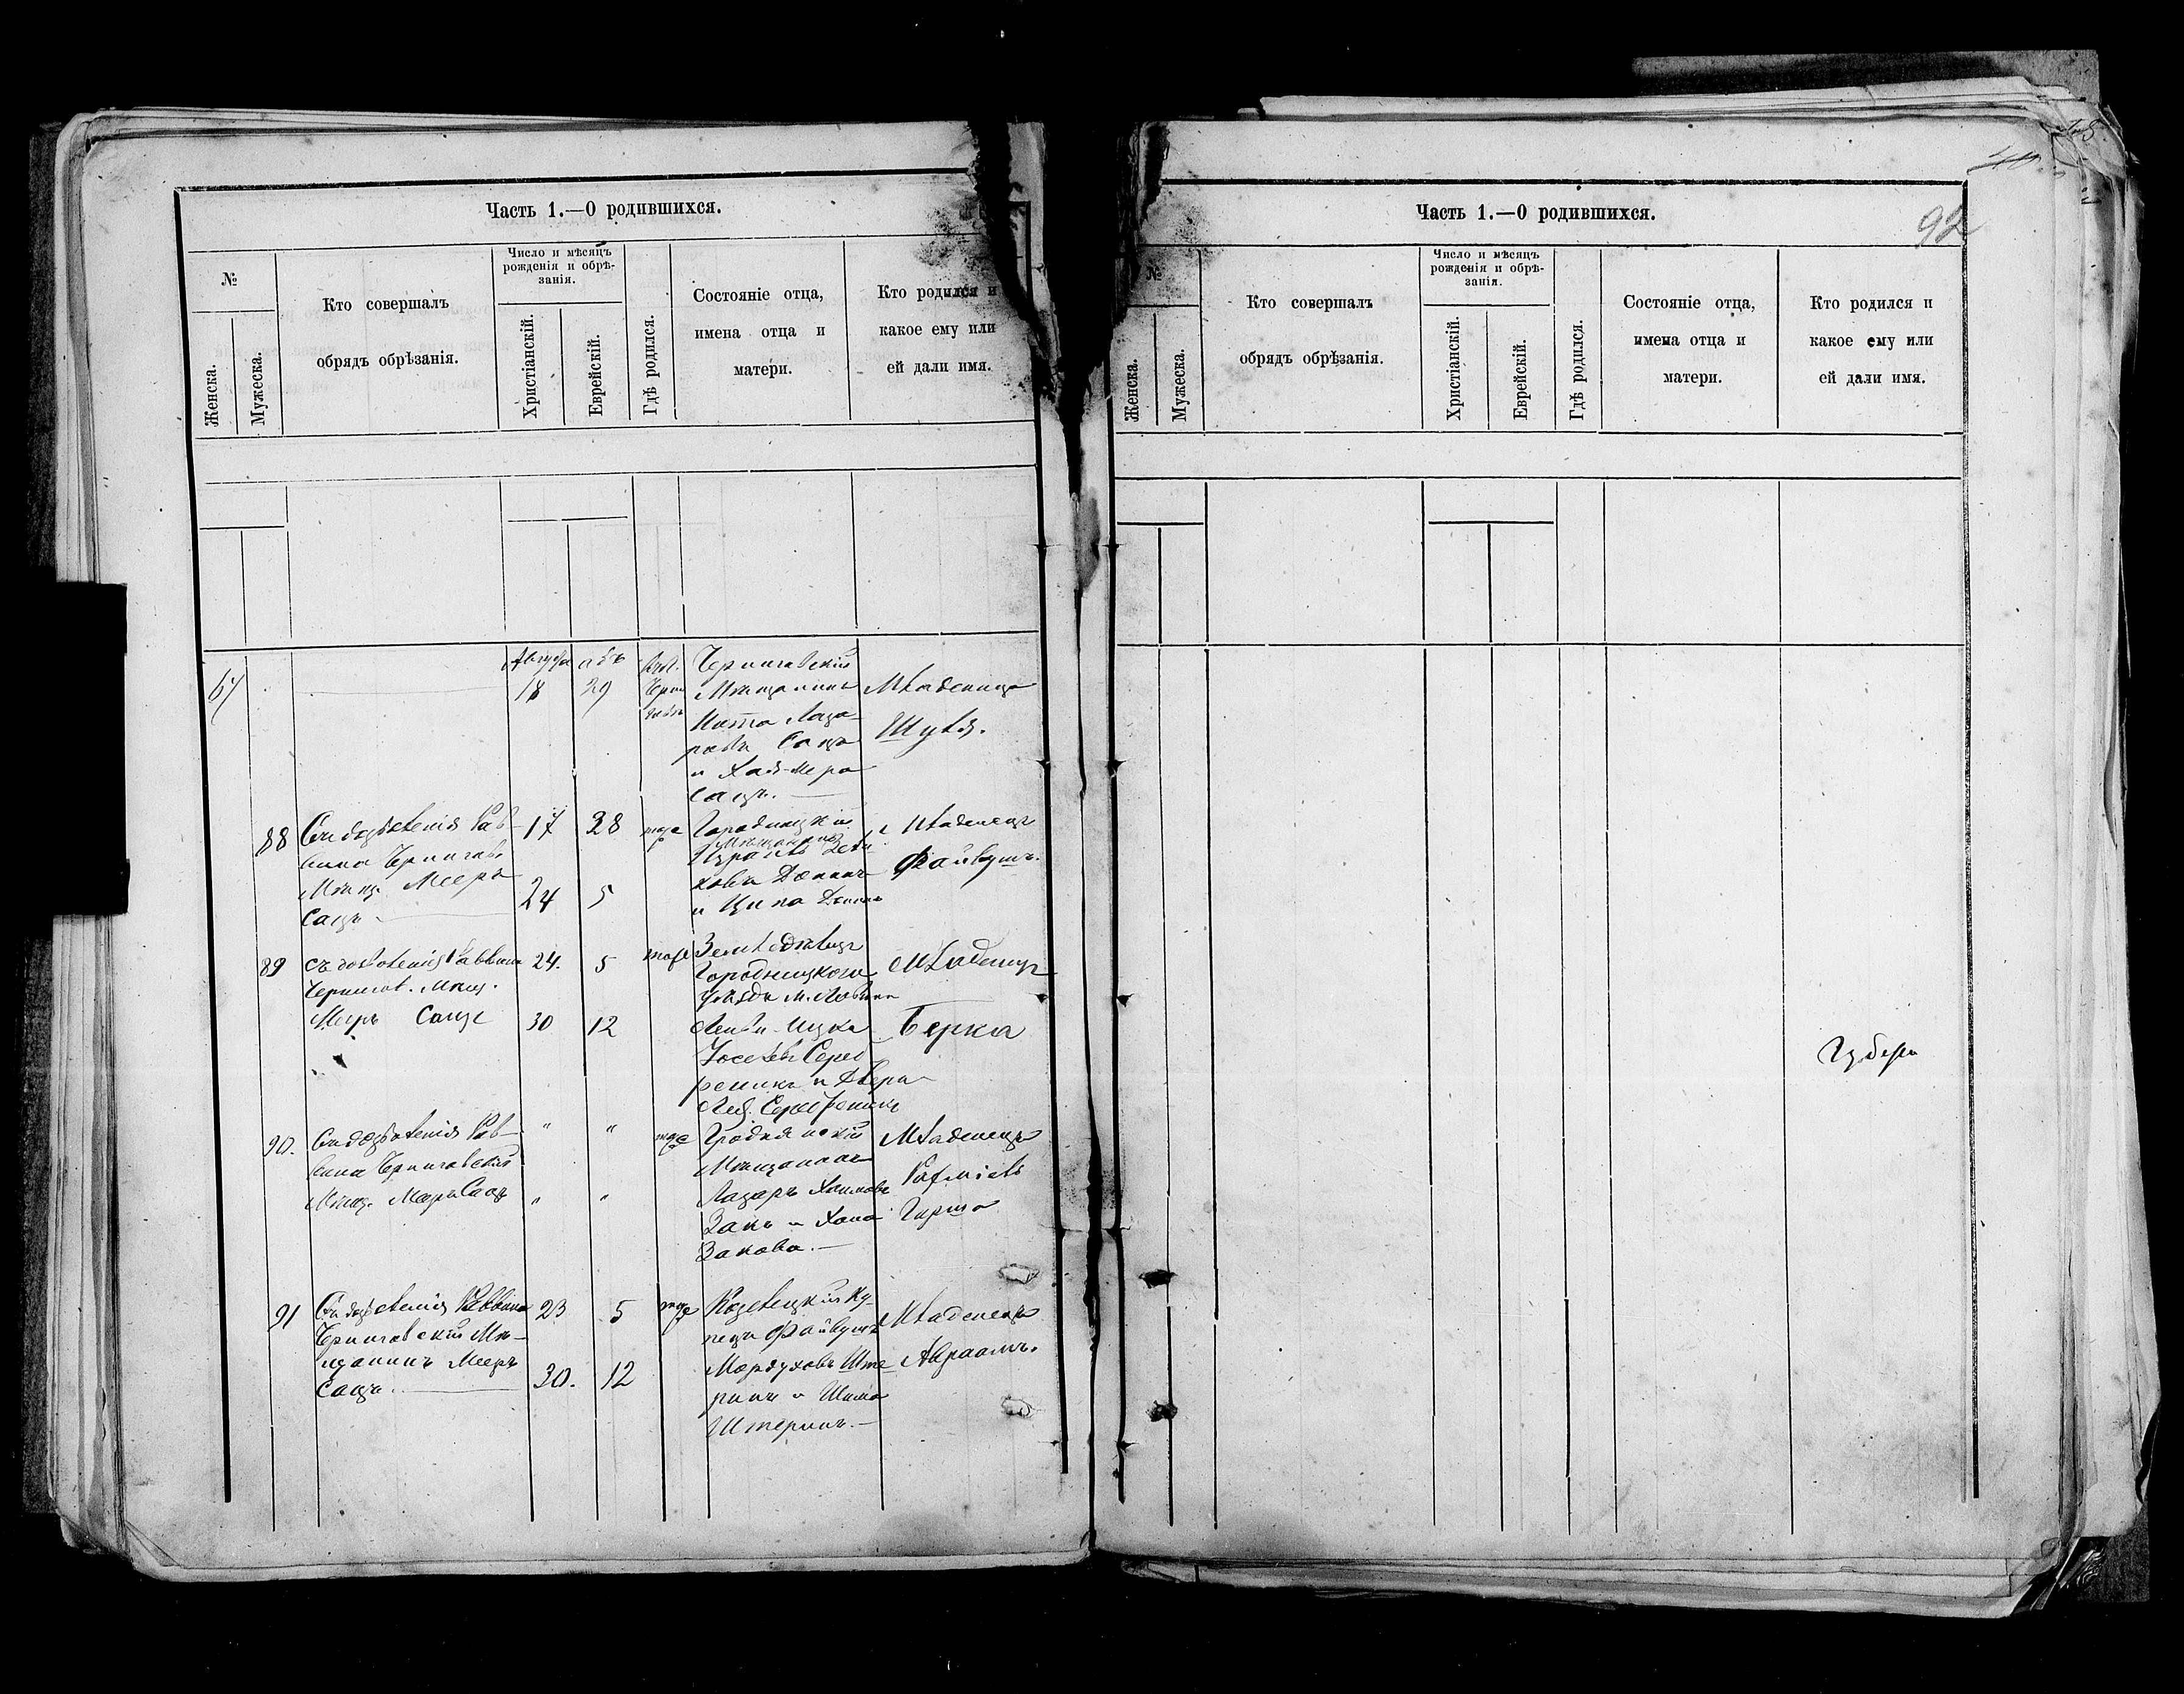 Часть 1.—О родившихся.
№
Женска.
Мужеска.
Кто совершалъ
обрядъ обрѣзанія.
Число и мѣсяцъ
рожденія и обрѣ-
занія.
Христіанскій.
Еврейскій.
Гдѣ родился.
Состояніе отца,
имена отца и
матери.
Кто родился и
какое ему или
ей дали имя.
67
Августа
18
абъ
29
Черниговскій
Мѣщанинъ
Лаза-
ровъ Сацъ
и Хая-Мера
Сацъ.
Младеница
Шуля.
88
Съ дозволенія Рав-
вина Чернигов.
Мѣщ. Мееръ
Сацъ
17
24
28
5
тоже
Городницкій
Мѣщанинъ
Израиль
и Ципа
Младенецъ
Файвушъ.
89
Съ дозволенія Раввина
Чернигов. Мѣщ.
Мееръ Сацъ
24.
30
5
12
тоже
Земледѣлецъ
Городницкого
уѣзда
Лейба-Ицка
и Двера
Младенецъ
Берка
90.
Съ дозволенія Рав-
вина Черниговскій
Мѣщ. Мееръ Сацъ
"
"
"
"
тоже
Мѣщанинъ
Лазарь Хаимовъ
Закъ и Хана
Закова.
Младенецъ
Гирша
91
Съ дозволенія Раввина
Черниговскій Мѣ-
щанинъ Мееръ
Сацъ.
23
30.
5
12
тоже
Козелецкій Ку-
пецъ Файвушъ
Мордуховъ Ште
ринъ и Шима
Штеринъ.
Младенецъ
Авраамъ.
Часть 1.—О родившихся.
92
№
Женска.
Мужеска.
Кто совершалъ
обрядъ обрѣзанія.
Число и мѣсяцъ
рожденія и обрѣ-
занія.
Христіанскій.
Еврейскій.
Гдѣ родился.
Состояніе отца,
имена отца и
матери.
Кто родился и
какое ему или
ей дали имя.